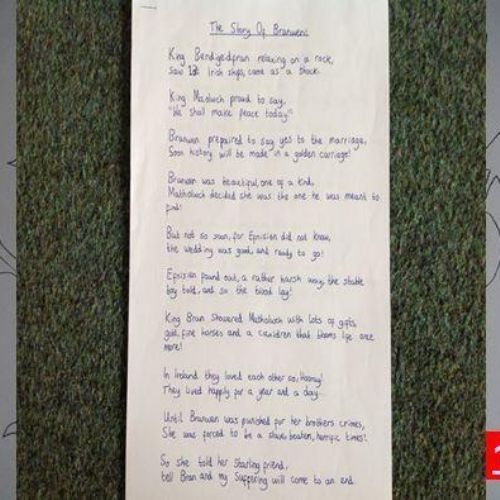 The Story Of Branwen:
King Bendigedfran relaxing on a rock,
Saw 13 Irish ships, came as a shock.
King Macolwch proud to say,
"We shall make peace today!"
Branwen prepaired to say yes to the marriage,
Soon history will be made in a golden carriage!
Branwen was beautiful, one of a kind,
Matholwch decided she was the one he was meant to
find!
But not so soon, for Epnisien did not know,
the wedding was good, and ready to go!
Epnisien found out, a rather harsh way, the stable
boy told, and so the blood lay!
King Bran showered Matholwch with lots of gifts,
gold, fine horses and a cauldren that blooms life once
more!
In Ireland they loved each other so, Hooray!
They lived happily for a year and a day...
Until Branwen was punished for her brothers crimes,
She was forced to be a slave, beaten, horrific times!
So she told her Starling friend,
tell Bran and my Suffering will come to an end.
1